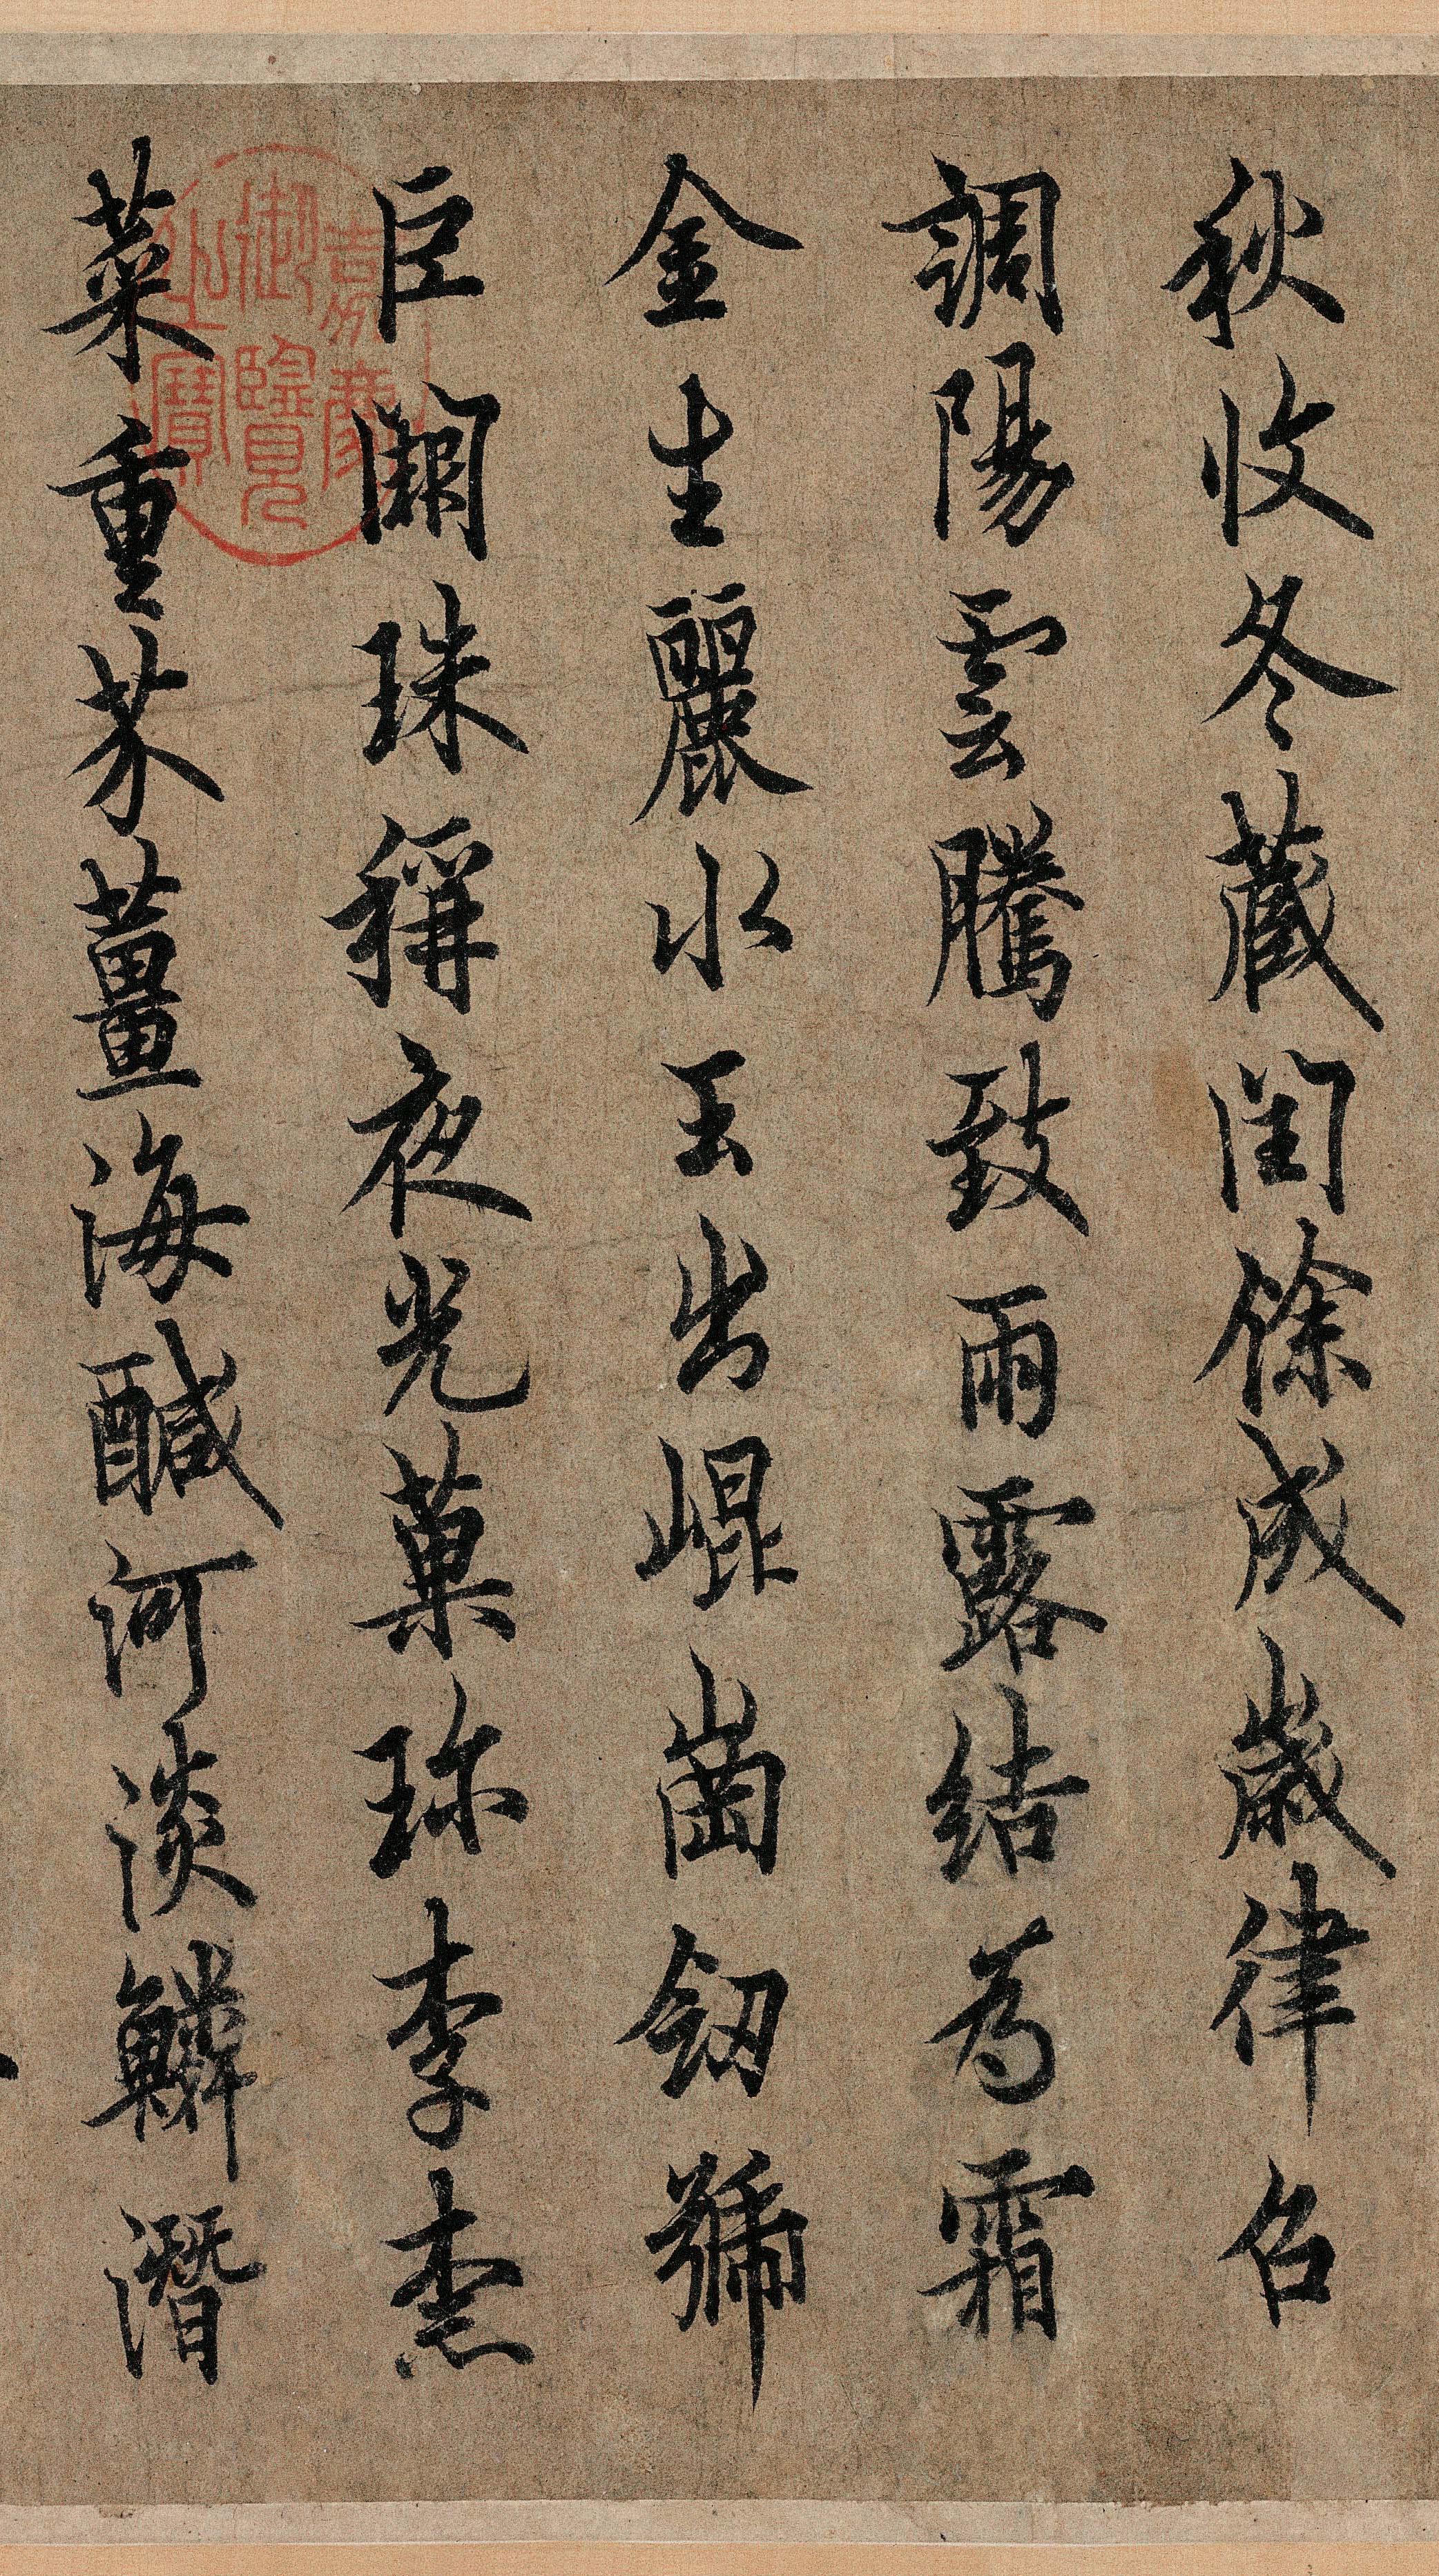 秋收冬蔵閏餘成歲律召
調陽雲騰致雨露結為霜
金生麗水玉出崐崗劔號
巨闕珠稱夜光菓珎李柰
菜重芥薑海醎河淡鱗潛
嘉慶御覽之寶